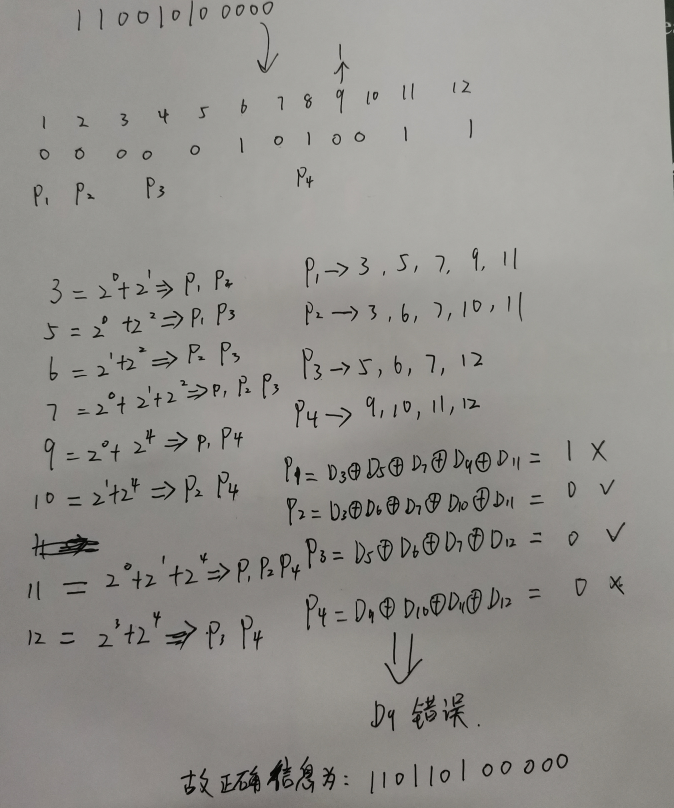 110010100000
1
1 2 3 4 5 6 7 8 9 10 11 12
0 0 0 0 0 1 0 1 0 0 1 1
P₁ P₂ P₃ P₄
3 = 2⁰+2¹ ⇒ P₁ P₂
5 = 2⁰+2² ⇒ P₁ P₃
6 = 2¹+2² ⇒ P₂ P₃
7 = 2⁰+2¹+2² ⇒ P₁ P₂ P₃
9 = 2⁰+2⁴ ⇒ P₁ P₄
10 = 2¹+2⁴ ⇒ P₂ P₄
11 = 2⁰+2¹+2⁴ ⇒ P₁ P₂ P₄
12 = 2³+2⁴ ⇒ P₃ P₄
P₁ → 3, 5, 7, 9, 11
P₂ → 3, 6, 7, 10, 11
P₃ → 5, 6, 7, 12
P₄ → 9, 10, 11, 12
P₁ = D₃⊕D₅⊕D₇⊕D₉⊕D₁₁ = 1 ×
P₂ = D₃⊕D₆⊕D₇⊕D₁₀⊕D₁₁ = 0 ✓
P₃ = D₅⊕D₆⊕D₇⊕D₁₂ = 0 ✓
P₄ = D₉⊕D₁₀⊕D₁₁⊕D₁₂ = 0 ×
D9 错误.
故正确信息为: 110110100000